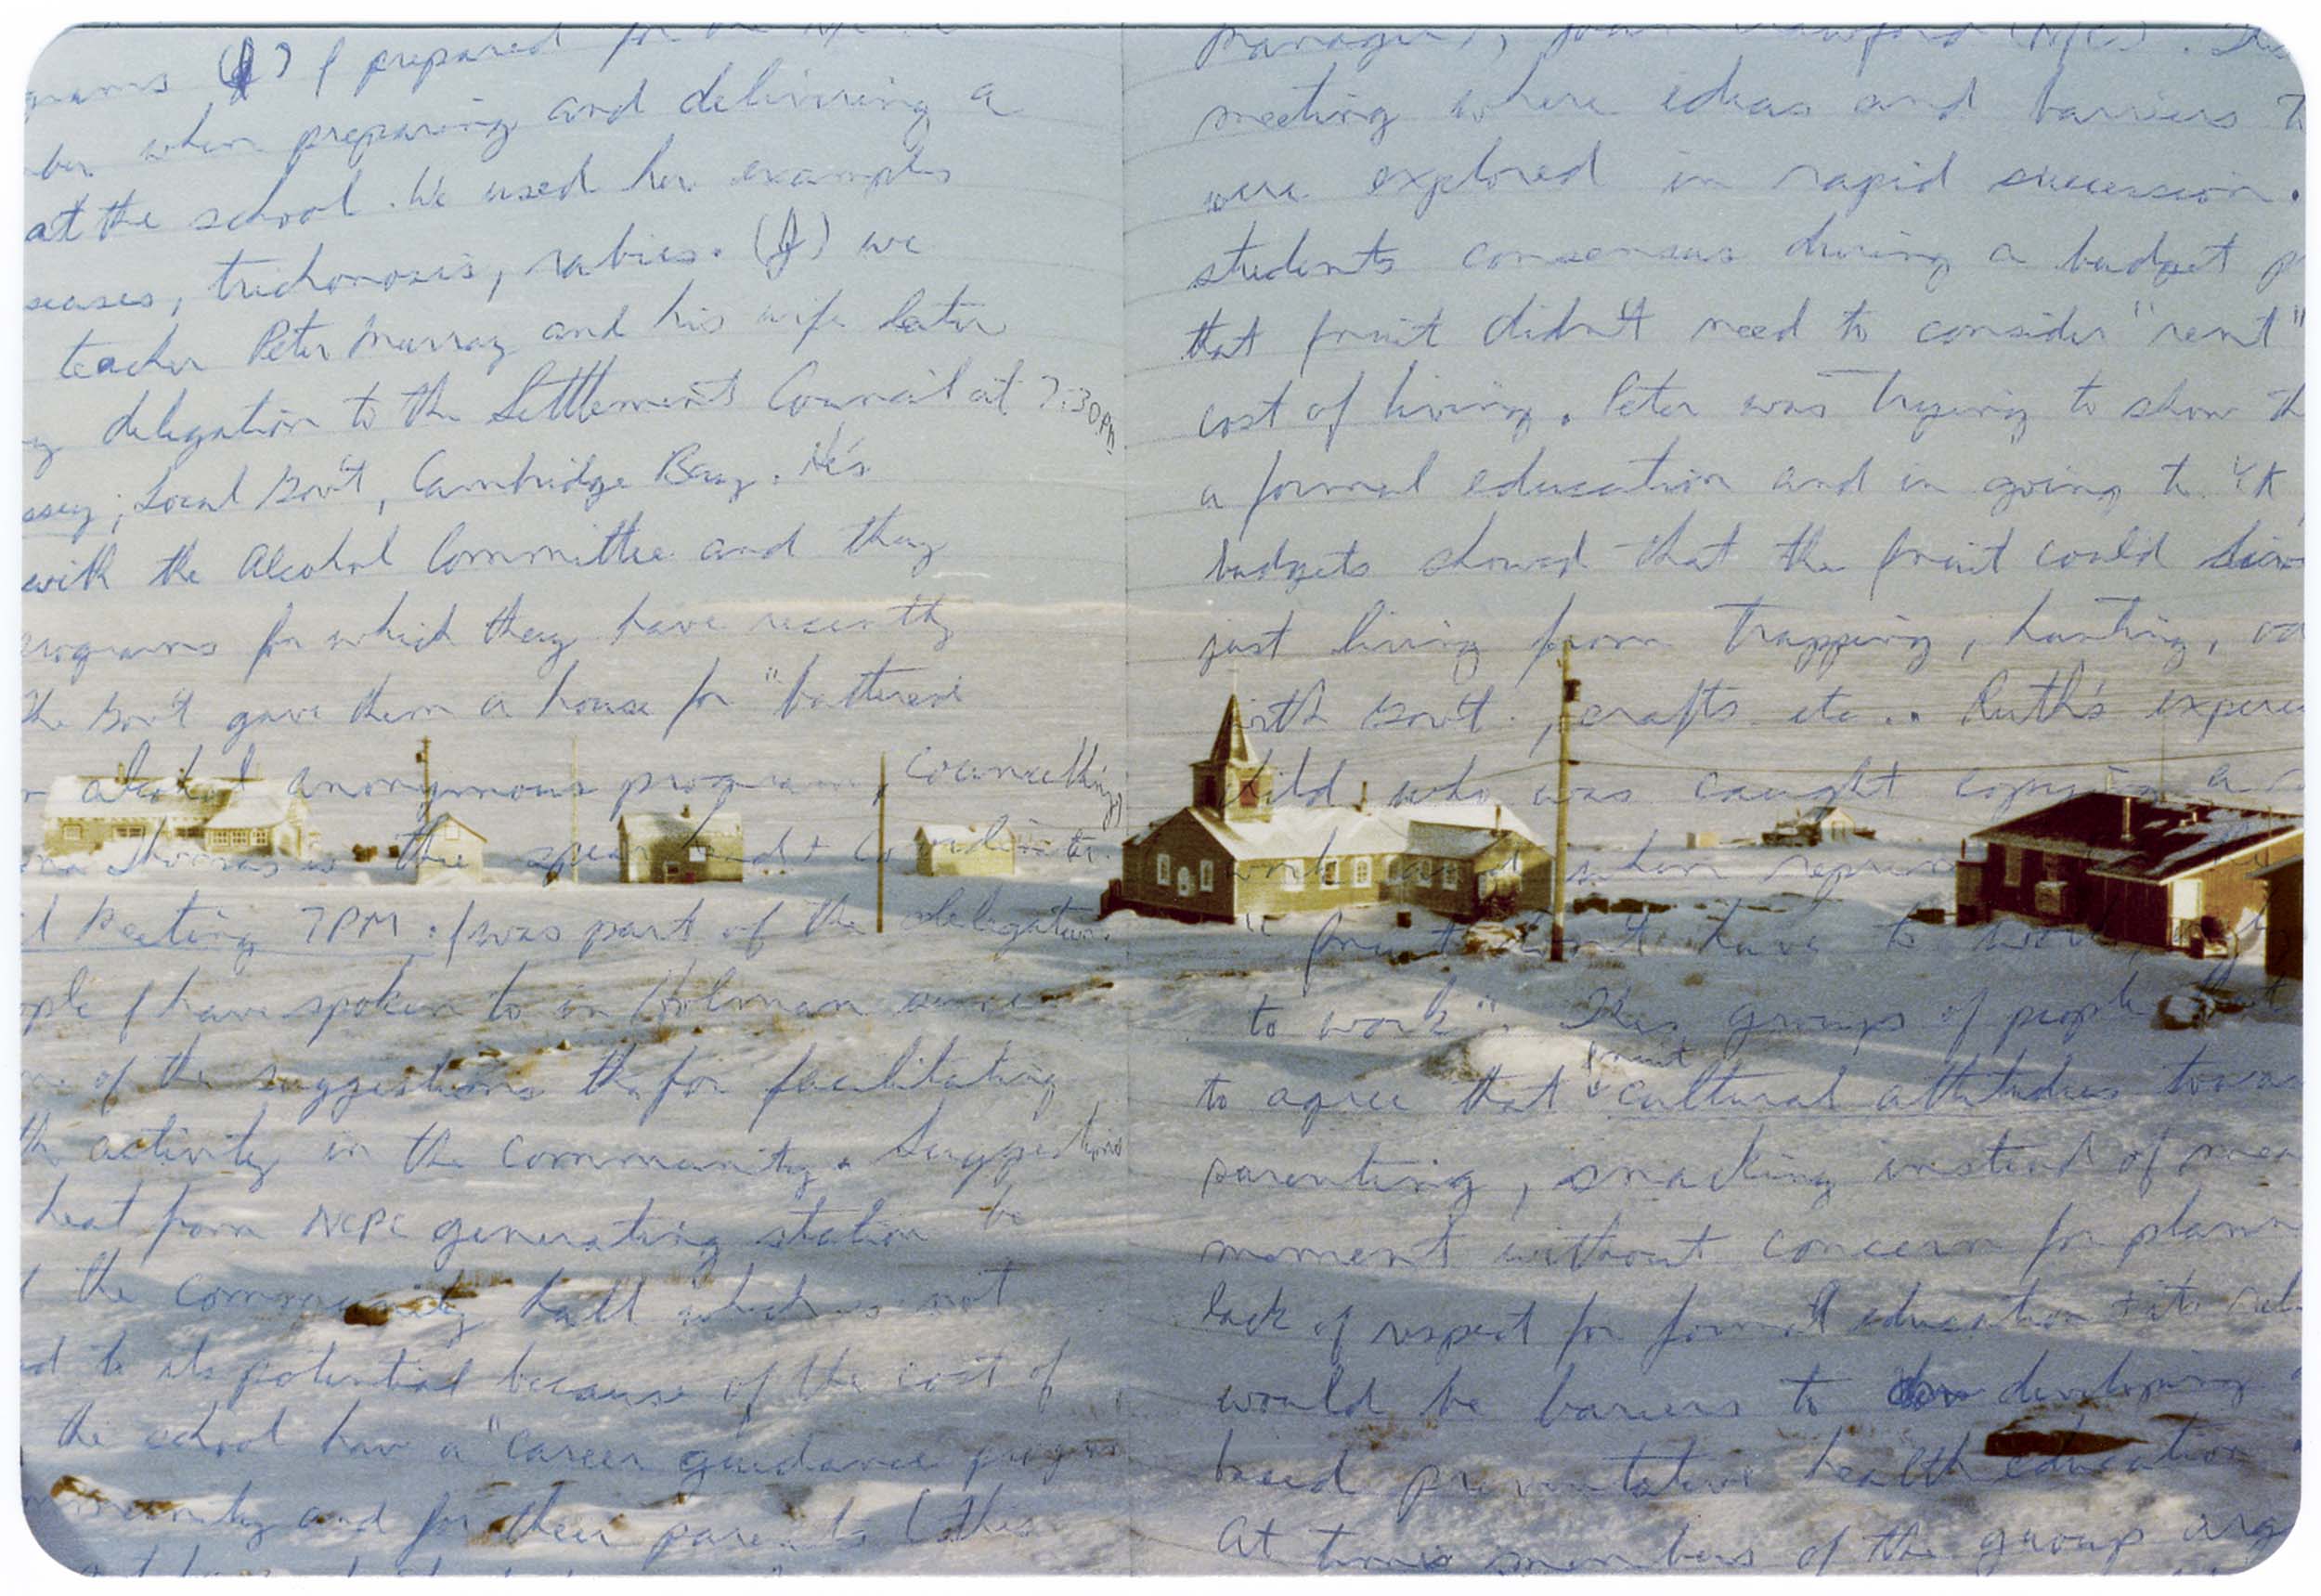 grams (f) I prepared for the
ber when preparing and delivering a
at the school. We used her examples
seases, trichonosis, rabies. (f) we
teacher Peter Murray and his wife later
g delegation to the Settlement Council at 7:30PM
ssey; Local Gov't, Cambridge Bay. He's
with the Alcohol Committee and they
rograms for which they have recently
the Gov't gave them a house for "battered
alcohol anonymous program, counselling,
Thomas is the spear head + Co ordinator.
l Meeting 7PM: I was part of the delegation.
ople I have spoken to in Holman were
of the suggestions for facilitating
th activity in the community. Suggestions
heat from NCPC generating station be
the community hall which is not
ed to its potential because of the cost of
the school have a "career guidance program
mmunity and for their parents (this
meeting where ideas and barriers to
were explored in rapid succession.
students consensus during a budget p
that Inuit didn't need to consider "rent"
cost of living. Peter was trying to show th
a formal education and in going to YK
budgets showed that the Inuit could
just living from trapping, hunting,
with Gov't., crafts etc.. Ruth's experi
child who was caught copying a
work and when
Inuit don't have to work,
to work". This groups of people
to agree that Inuit cultural attitudes towa
parenting, snacking instead of mea
moment without concern for plann
lack of respect for formal education + its
would be barriers to developing
based preventative health education
At times members of the group arg